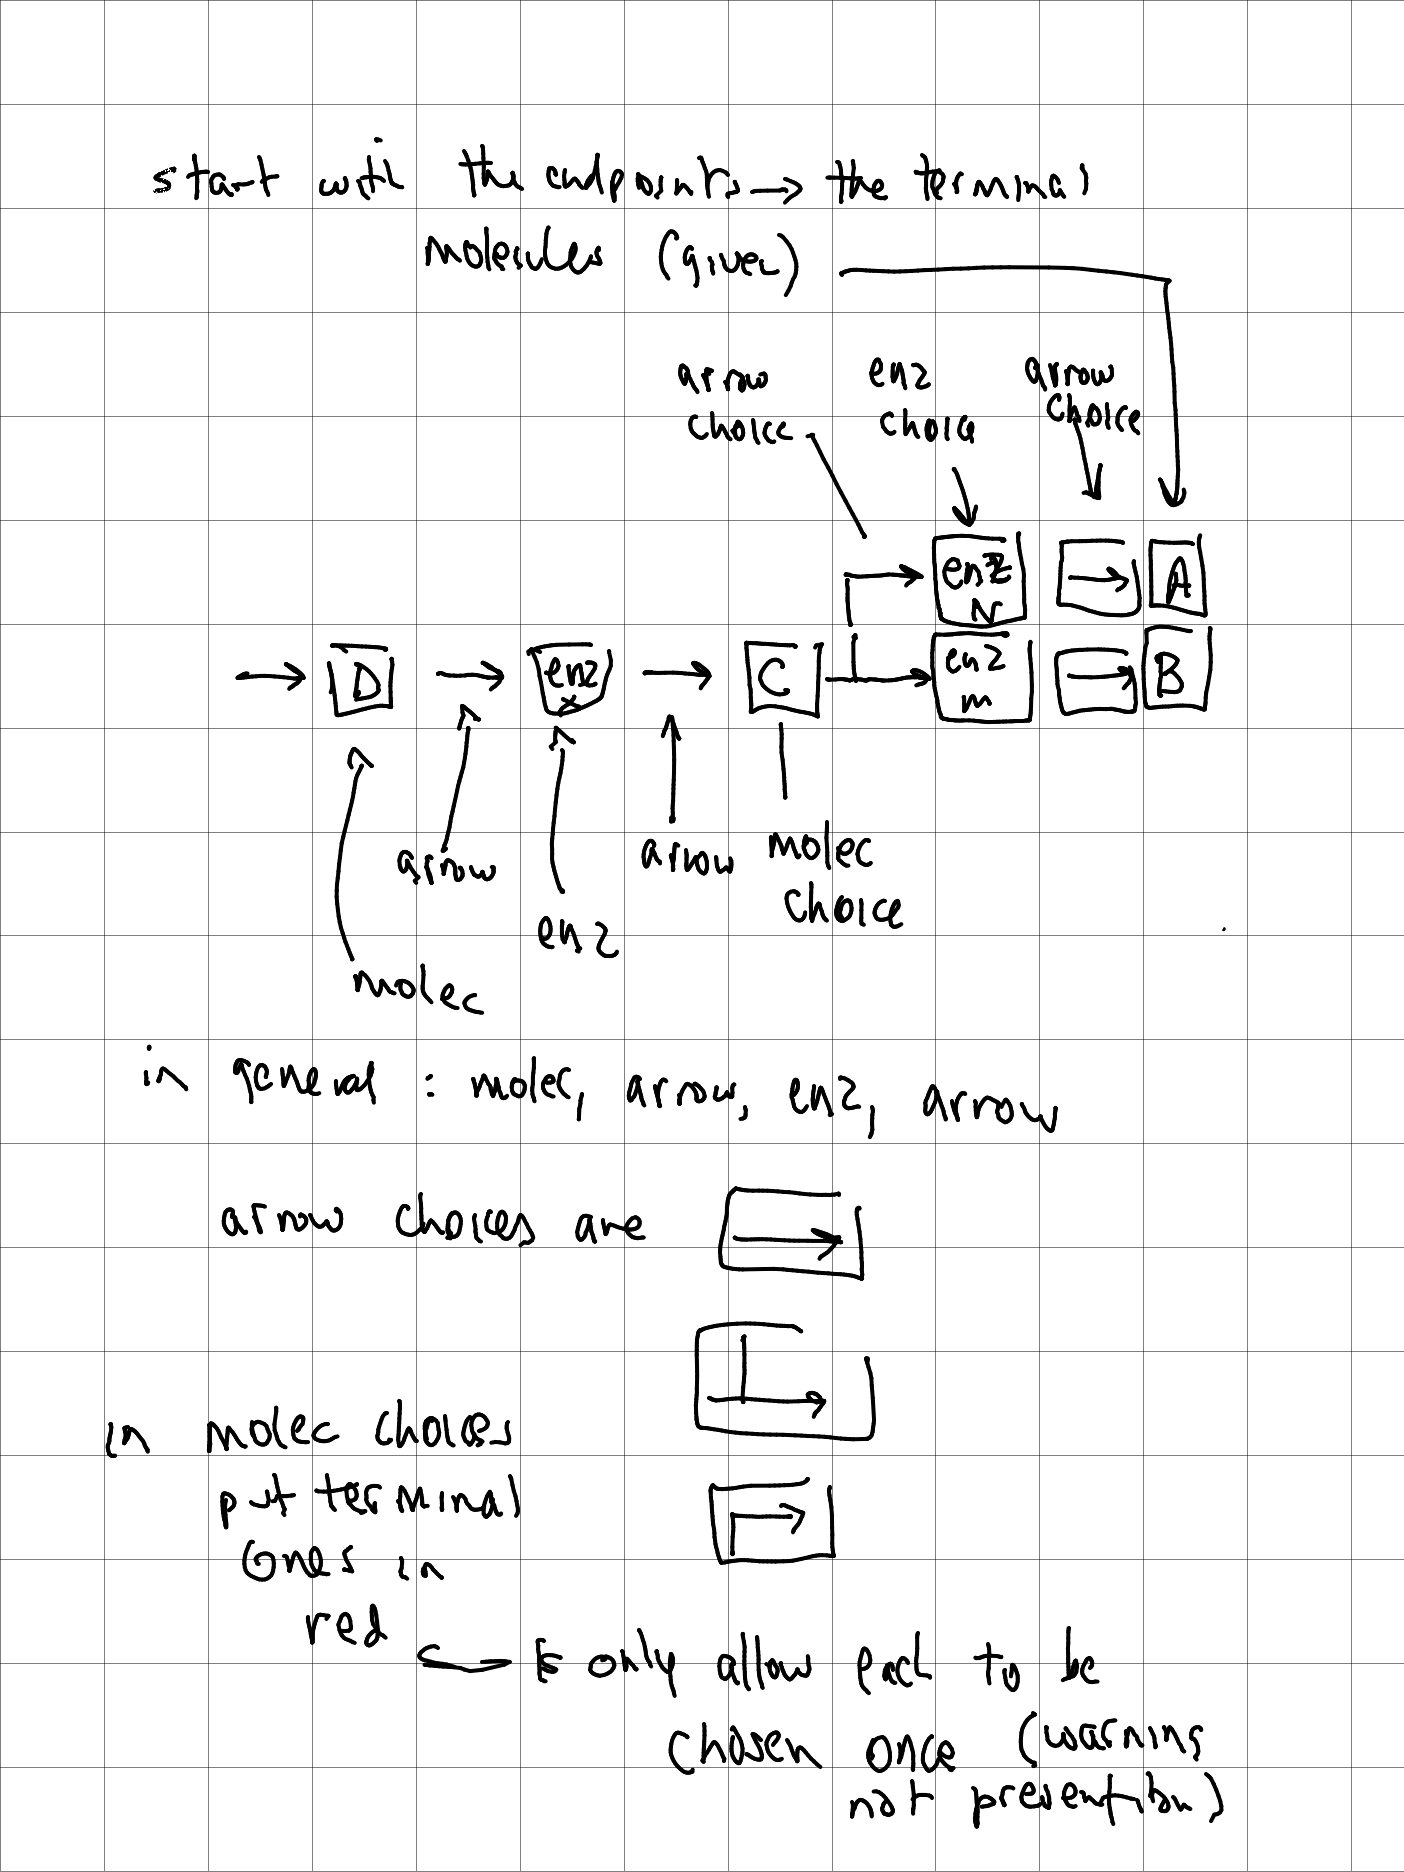 start with the endpoints → the terminal
molecules (given)
arrow choice
enz choice
arrow choice
enz N
A
D
enz x
C
enz m
B
arrow
arrow
molec choice
enz
molec
in general : molec, arrow, enz, arrow
arrow choices are
in molec choices
put terminal
ones in
red
& only allow each to be
chosen once (warning
not prevention)